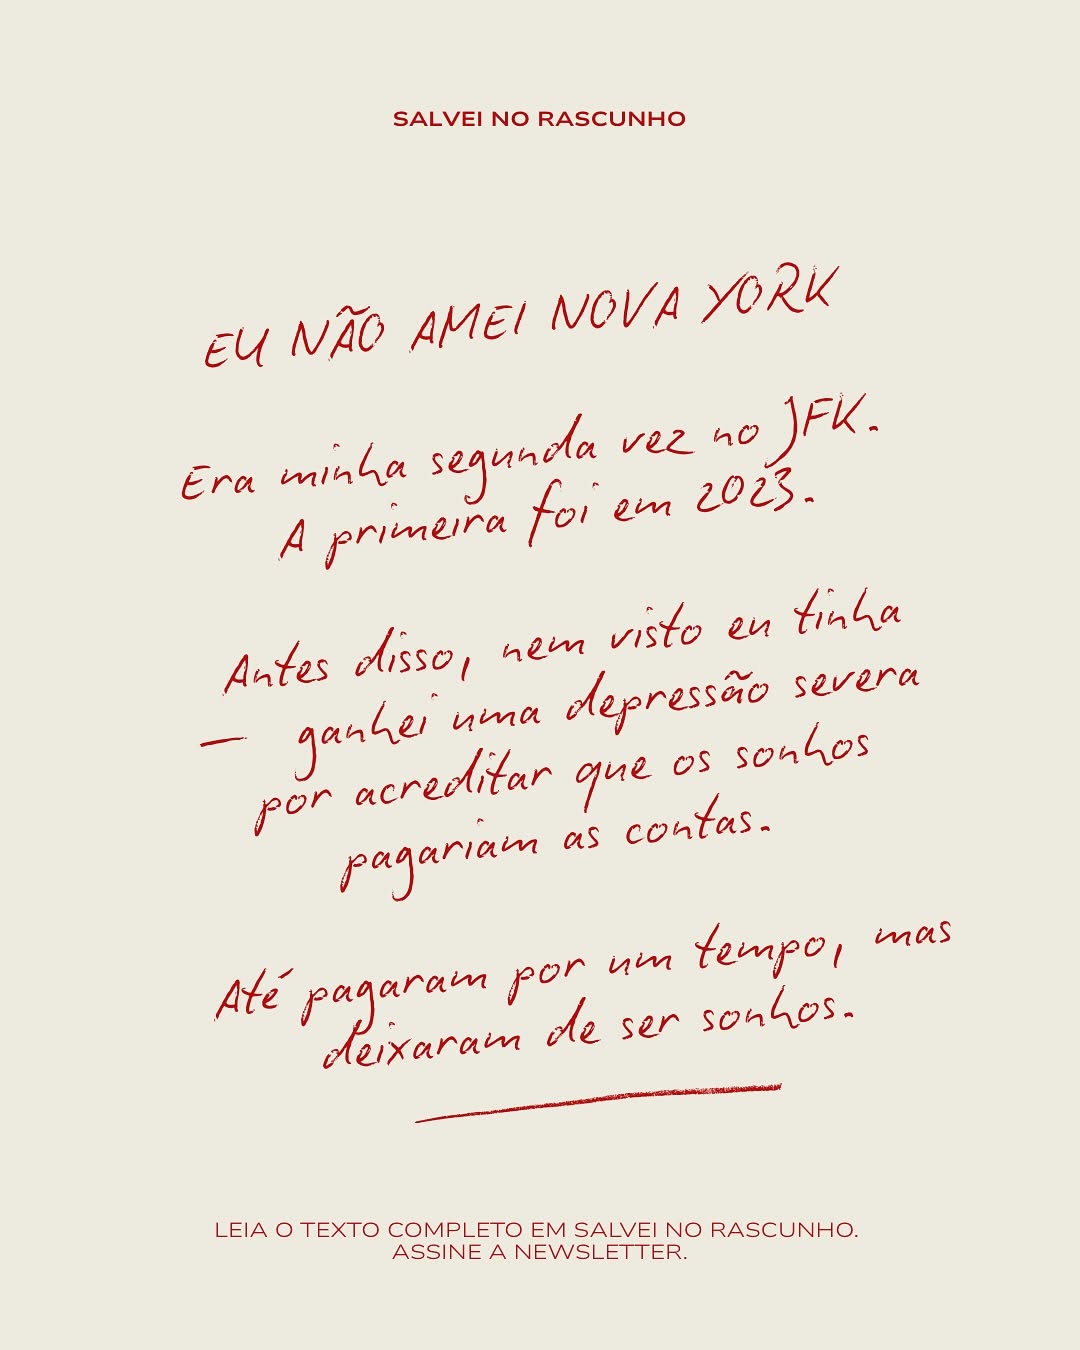 SALVEI NO RASCUNHO
EU NÃO AMEI NOVA YORK
Era minha segunda vez no JFK.
A primeira foi em 2023.
Antes disso, nem visto eu tinha
— ganhei uma depressão severa
por acreditar que os sonhos
pagariam as contas.
Até pagaram por um tempo, mas
deixaram de ser sonhos.
LEIA O TEXTO COMPLETO EM SALVEI NO RASCUNHO.
ASSINE A NEWSLETTER.